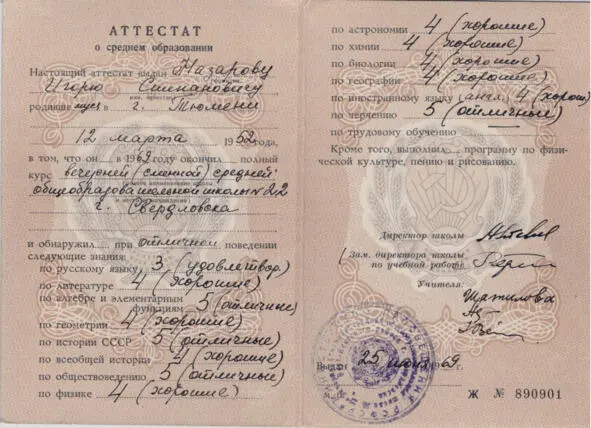 АТТЕСТАТ
о среднем образовании
Настоящий аттестат выдан Назарову
Игорю Степановичу
родивше муся в г. Тюмени
12 марта 1952 года,
в том, что он в 1969 году окончил полный
курс вечерней (сменной) средней
общеобразовательной школы № 22
г. Свердловска
и обнаружил при отличном поведении
следующие знания:
по русскому языку 3 (удовлетвор.)
по литературе 4 (хорошие)
по алгебре и элементарным
функциям 5 (отличные)
по геометрии 4 (хорошие)
по истории СССР 5 (отличные)
по всеобщей истории 4 (хорошие)
по обществоведению 5 (отличные)
по физике 4 (хорошие)
по астрономии 4 (хорошие)
по химии 4 (хорошие)
по биологии 4 (хорошие)
по географии 4 (хорошие)
по иностранному языку (англ.) 4 (хорош)
по черчению 5 (отличные)
по трудовому обучению
Кроме того, выполнил программу по физи-
ческой культуре, пению и рисованию.
Директор школы
Зам. директора школы
по учебной работе
Учителя:
Шатилова
Выдан 25 июня 1969 г.
Ж № 890901